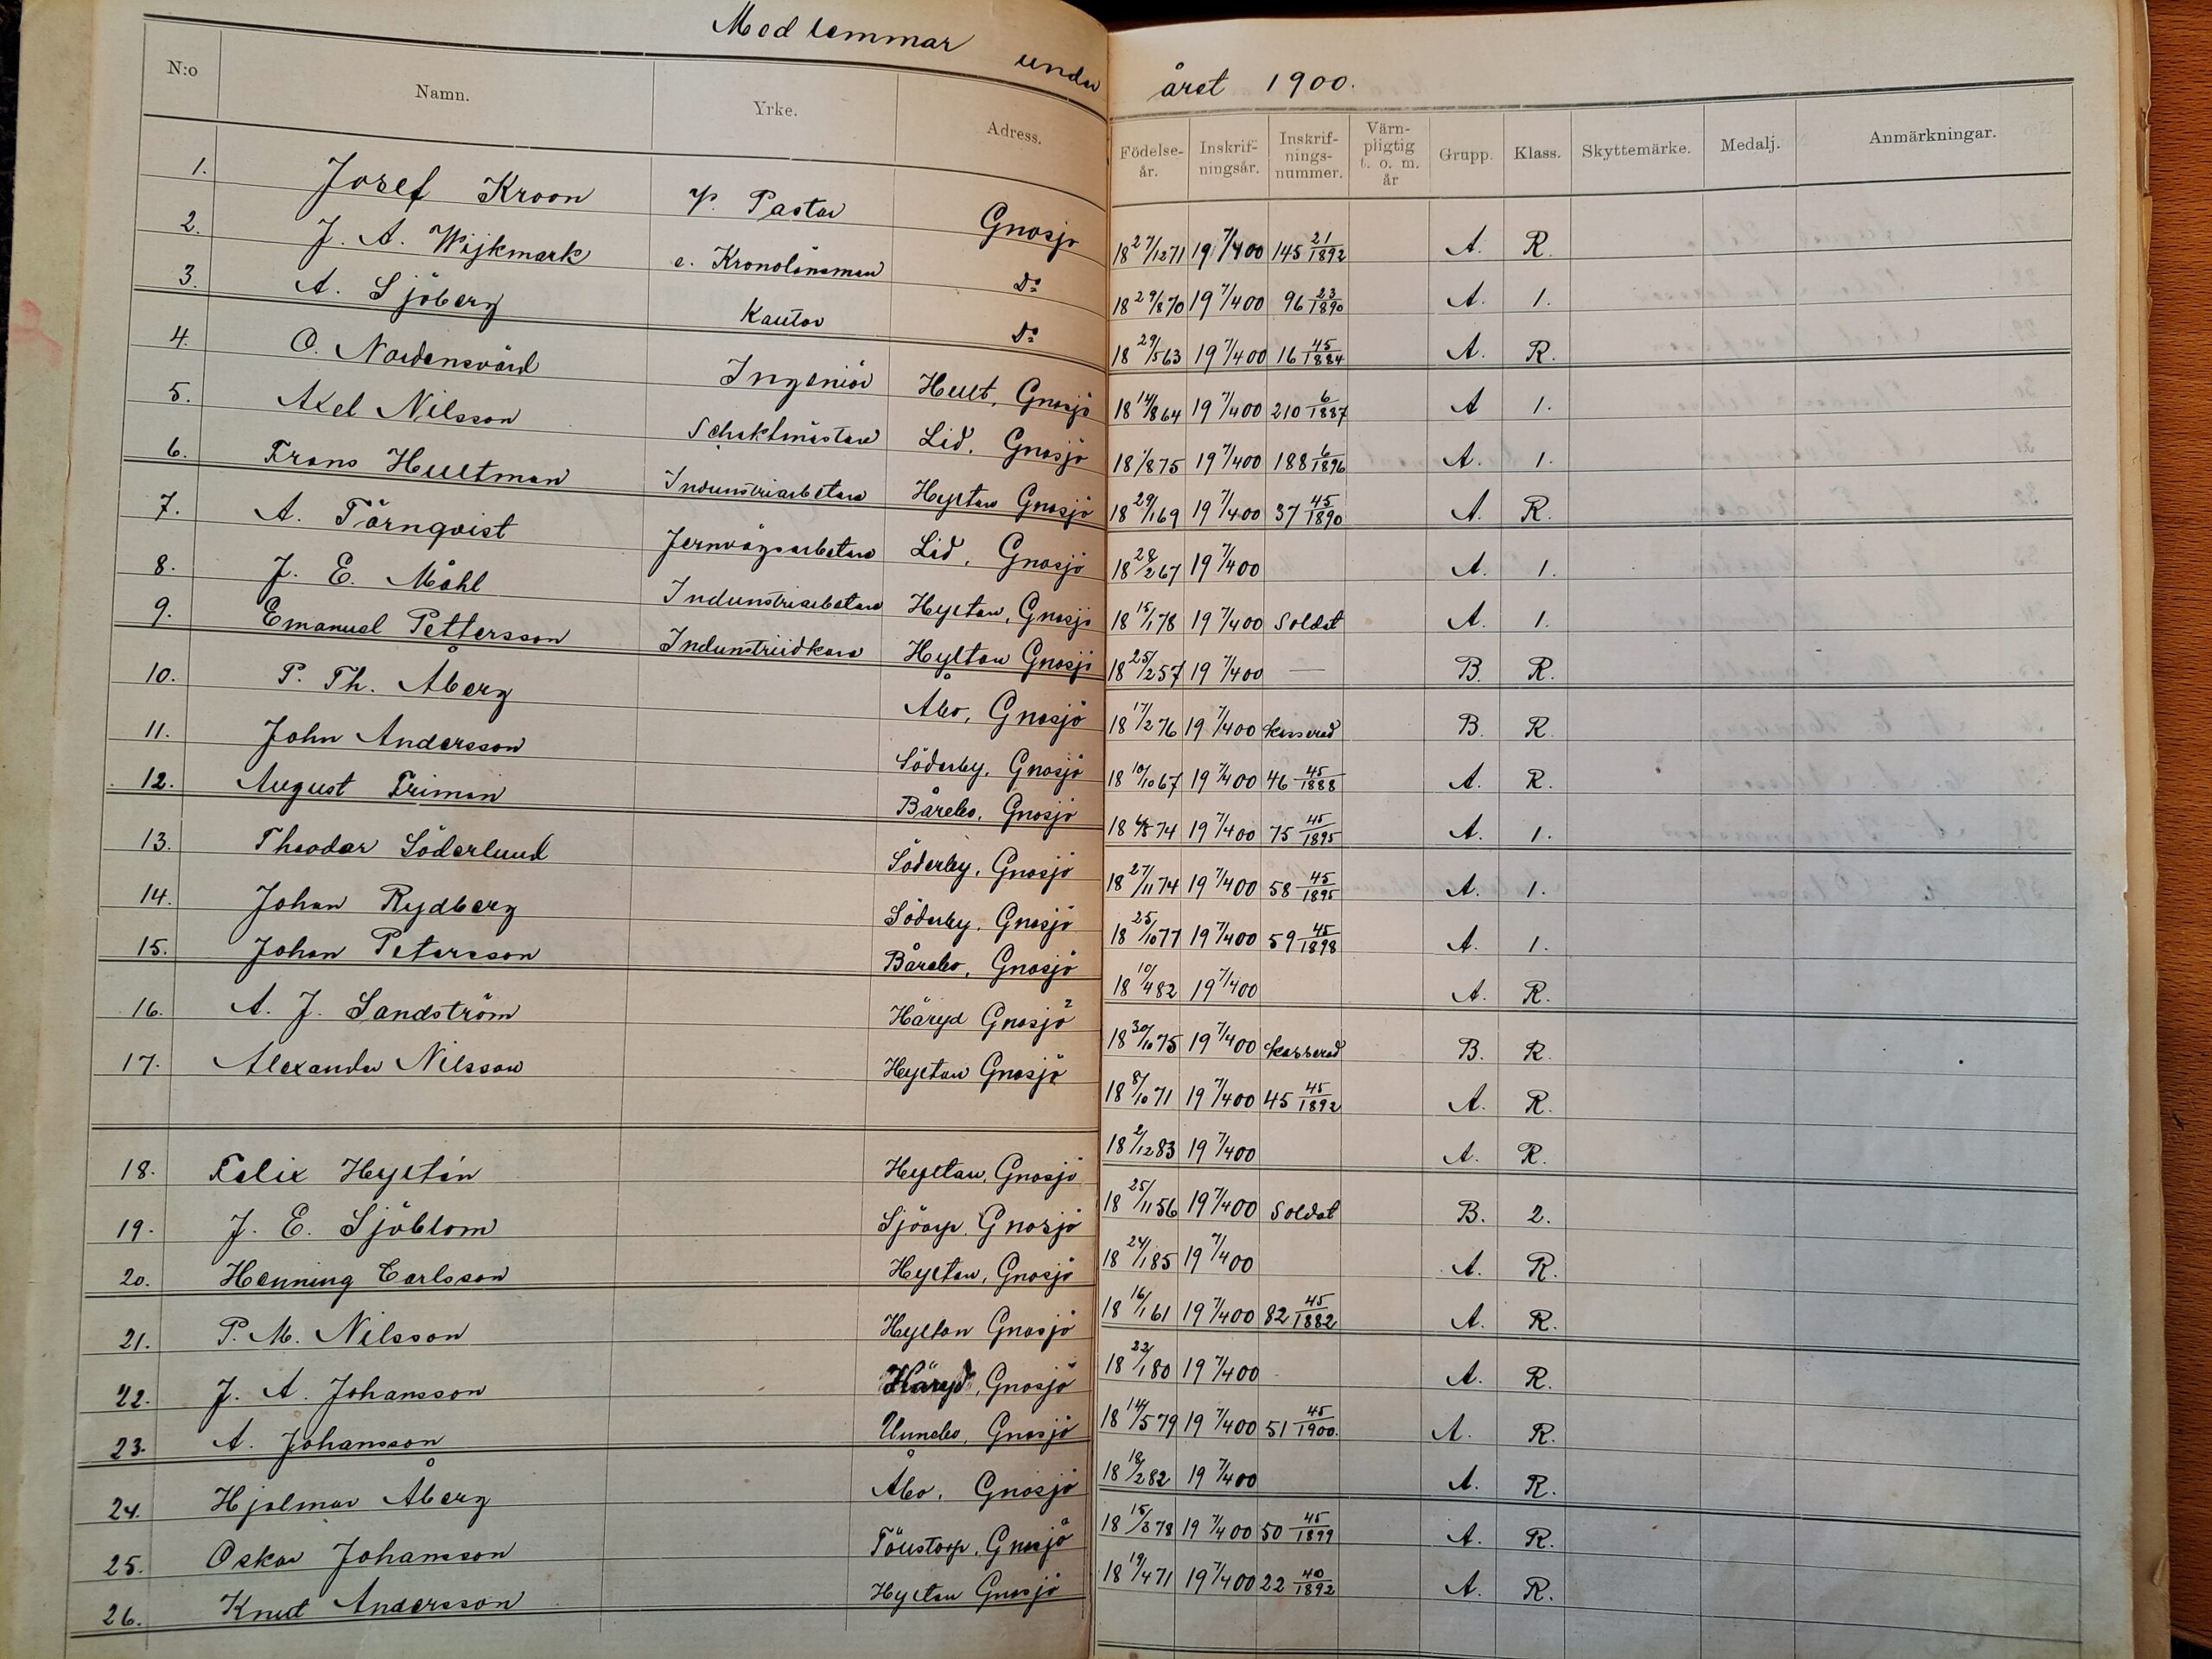 Medlemmar under året 1900.
N:o Namn. Yrke. Adress. Födelse-år. Inskrif-ningsår. Inskrif-nings-nummer. Värn-pligtig t. o. m. år Grupp. Klass. Skyttemärke. Medalj. Anmärkningar.
1. Josef Kroon v. Pastor Gnosjö 18 27/12 71 19 7/4 00 145 21/1892 A. R.
2. J. A. Wijkmark e. Kronolänsman Do 18 29/8 70 19 7/4 00 96 23/1890 A. 1.
3. A. Sjöberg Kantor Do 18 29/5 63 19 7/4 00 16 45/1884 A. R.
4. O. Nordensvärd Ingeniör Hult, Gnosjö 18 14/8 64 19 7/4 00 210 6/1887 A 1.
5. Axel Nilsson Schaktmästare Lid, Gnosjö 18 1/8 75 19 7/4 00 188 6/1896 A. 1.
6. Frans Hultman Industriarbetare Hyltan Gnosjö 18 29/1 69 19 7/4 00 37 45/1890 A. R.
7. A. Törnqvist Jernvägsarbetare Lid, Gnosjö 18 28/2 67 19 7/4 00 A. 1.
8. J. E. Måhl Industriarbetare Hyltan, Gnosjö 18 15/1 78 19 7/4 00 Soldat A. 1.
9. Emanuel Pettersson Industriidkare Hyltan Gnosjö 18 25/2 57 19 7/4 00 — B. R.
10. P. Th. Åberg Åbo, Gnosjö 18 17/2 76 19 7/4 00 kasserad B. R
11. John Andersson Söderby, Gnosjö 18 10/10 67 19 7/4 00 46 45/1888 A. R.
12. August Friman Bårebo, Gnosjö 18 74 19 7/4 00 75 45/1895 A. 1.
13. Theodor Söderlund Söderby, Gnosjö 18 27/11 74 19 7/4 00 58 45/1895 A. 1.
14. Johan Rydberg Söderby, Gnosjö 18 25/10 77 19 7/4 00 59 45/1898 A. 1.
15. Johan Petersson Bårebo, Gnosjö 18 10/4 82 19 7/4 00 A. R.
16. A. J. Sandström Häryd Gnosjö 18 30/10 75 19 7/4 00 kasserad B. R.
17. Alexander Nilsson Hyltan Gnosjö 18 8/10 71 19 7/4 00 45 45/1892 A. R.
18. Felix Hyltén Hyltan, Gnosjö 18 2/12 83 19 7/4 00 A. R.
19. J. E. Sjöblom Sjöarp, Gnosjö 18 25/11 56 19 7/4 00 Soldat B. 2.
20. Henning Carlsson Hyltan, Gnosjö 18 24/1 85 19 7/4 00 A. R.
21. P. M. Nilsson Hyltan Gnosjö 18 16/1 61 19 7/4 00 82 45/1882 A. R.
22. J. A. Johansson Häryd, Gnosjö 18 22/1 80 19 7/4 00 A. R.
23. A. Johansson Gnosjö 18 14/5 79 19 7/4 00 51 45/1900. A. R.
24. Hjalmar Åberg Åbo, Gnosjö 18 18/2 82 19 7/4 00 A. R.
25. Oskar Johansson Töustorp, Gnosjö 18 15/3 78 19 7/4 00 50 45/1899 A. R.
26. Knut Andersson Hyltan Gnosjö 18 19/4 71 19 7/4 00 22 40/1892 A. R.